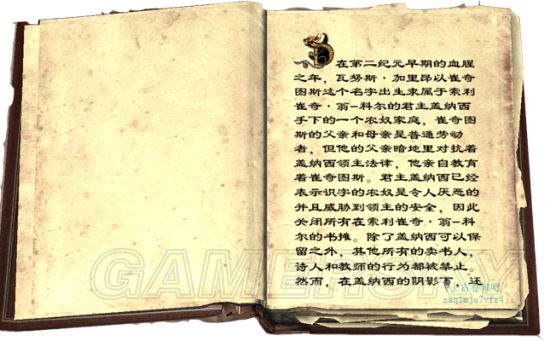 在第二纪元早期的血腥
之年，瓦努斯·加里昂以崔奇
图斯这个名字出生隶属于索利
崔奇·翁-科尔的君主盖纳西
手下的一个农奴家庭，崔奇图
斯的父亲和母亲是普通劳动
者，但他的父亲暗地里对抗着
盖纳西领主法律，他亲自教育
着崔奇图斯。君主盖纳西已经
表示识字的农奴是令人厌恶的
并且威胁到领主的安全，因此
关闭所有在索利崔奇·翁-科
尔的书摊。除了盖纳西可以保
留之外，其他所有的卖书人，
诗人和教师的行为都被禁止。
然而，在盖纳西的阴影下，还
GAMERSKY
上古卷轴吧
zsq1mju7vfr4